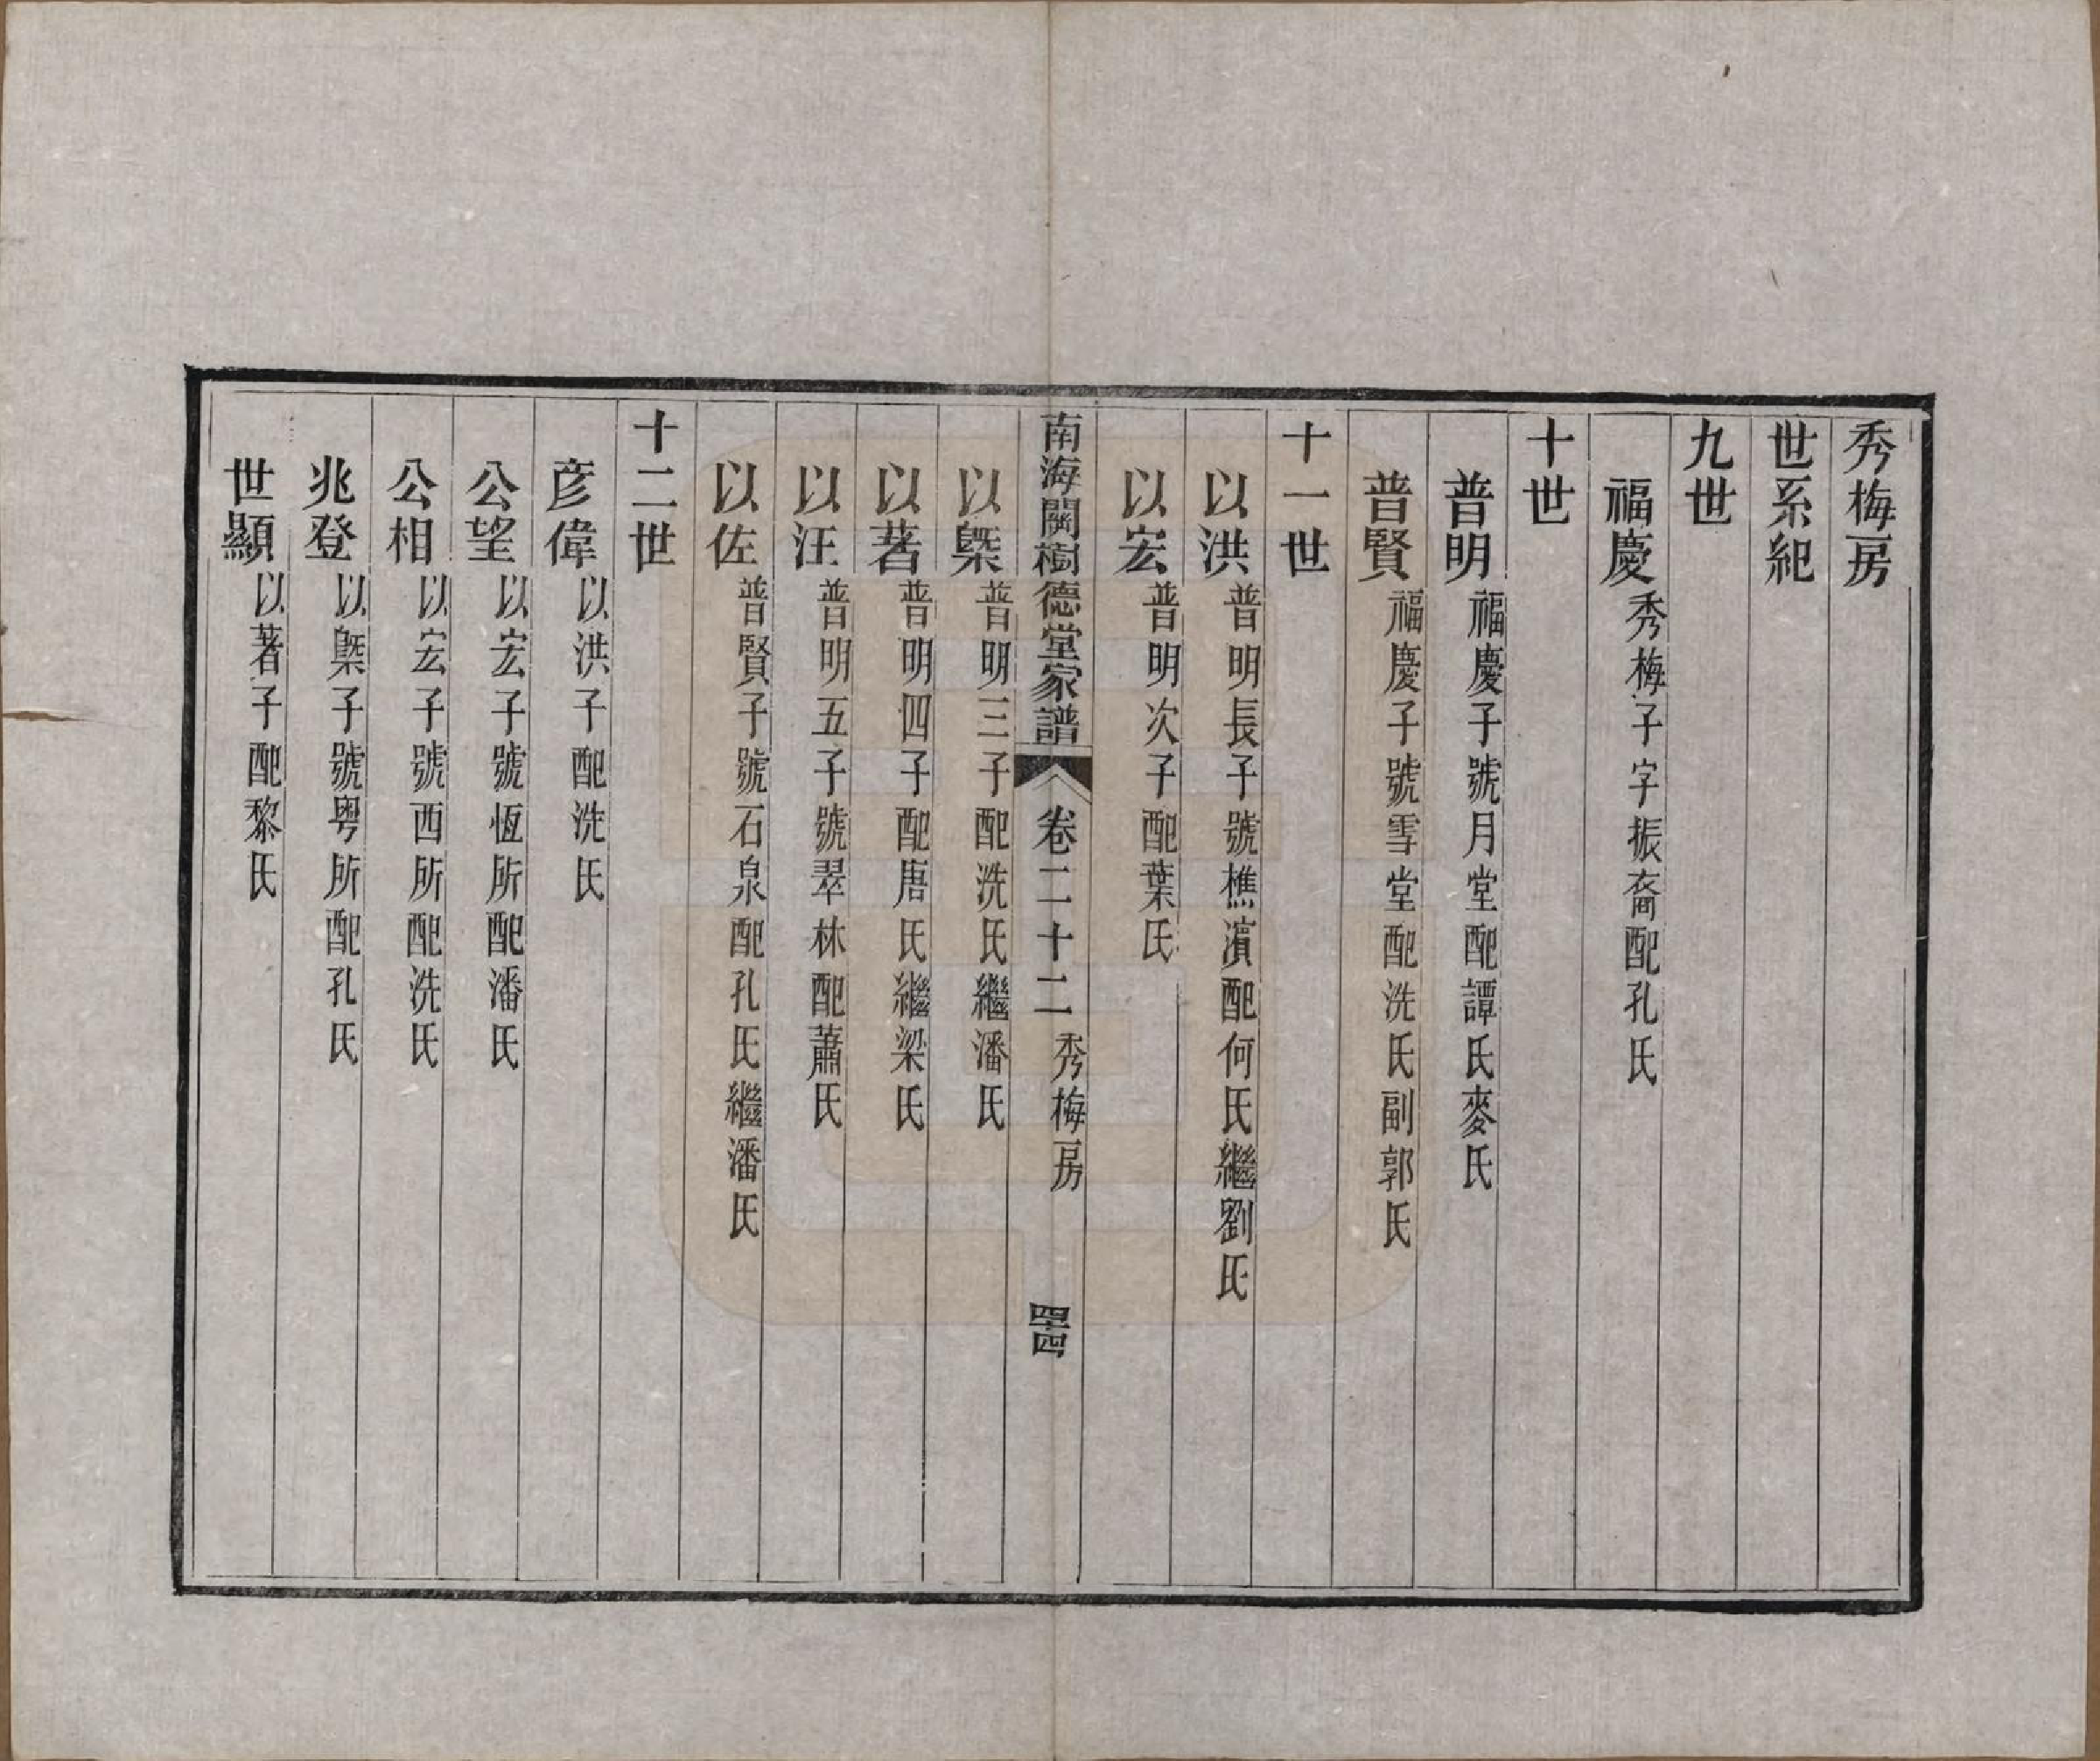 秀梅房
世系紀
九世
福慶 秀梅子字振裔配孔氏
十世
普明 福慶子號月堂配譚氏麥氏
普賢 福慶子號雪堂配洗氏副郭氏
十一世
以洪 普明長子號樵濵配何氏繼劉氏
以宏 普明次子配葉氏
南海關樹德堂家譜 卷二十二 秀梅房 四十四
以槩 普明三子配洗氏繼潘氏
以著 普明四子配唐氏繼梁氏
以汪 普明五子號翠林配蕭氏
以佐 普賢子號石泉配孔氏繼潘氏
十二世
彦偉 以洪子配洗氏
公望 以宏子號恆所配潘氏
公相 以宏子號西所配洗氏
兆登 以槩子號粤所配孔氏
世顯 以著子配黎氏